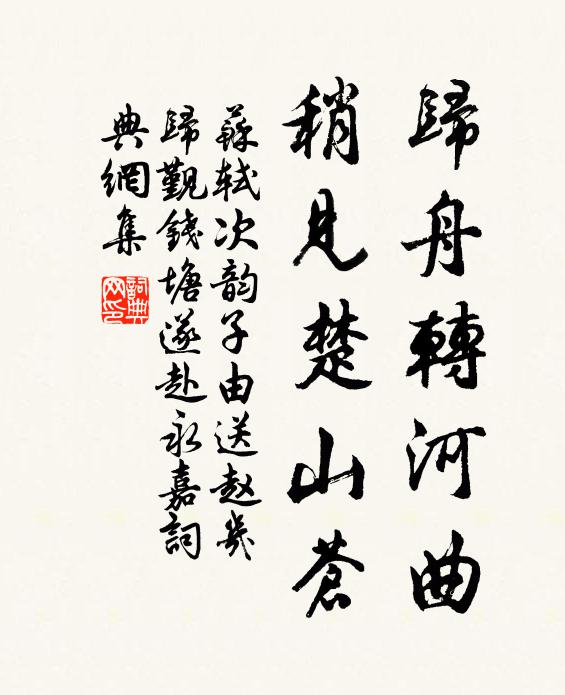 歸舟轉河曲
稍見楚山蒼
蘇軾次韵子由送赵㞦
歸觐錢塘遂赴永嘉詞
典網集
詞典網印